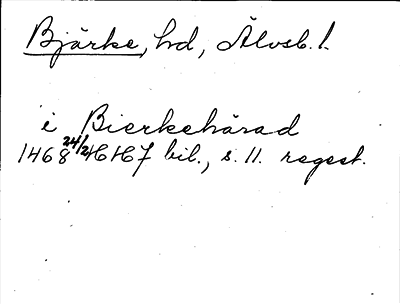 Bjärke, hd, Älvsb. l.
i Bierkehärad
1468 24/2 HH 7 bil., s. 11. regest.